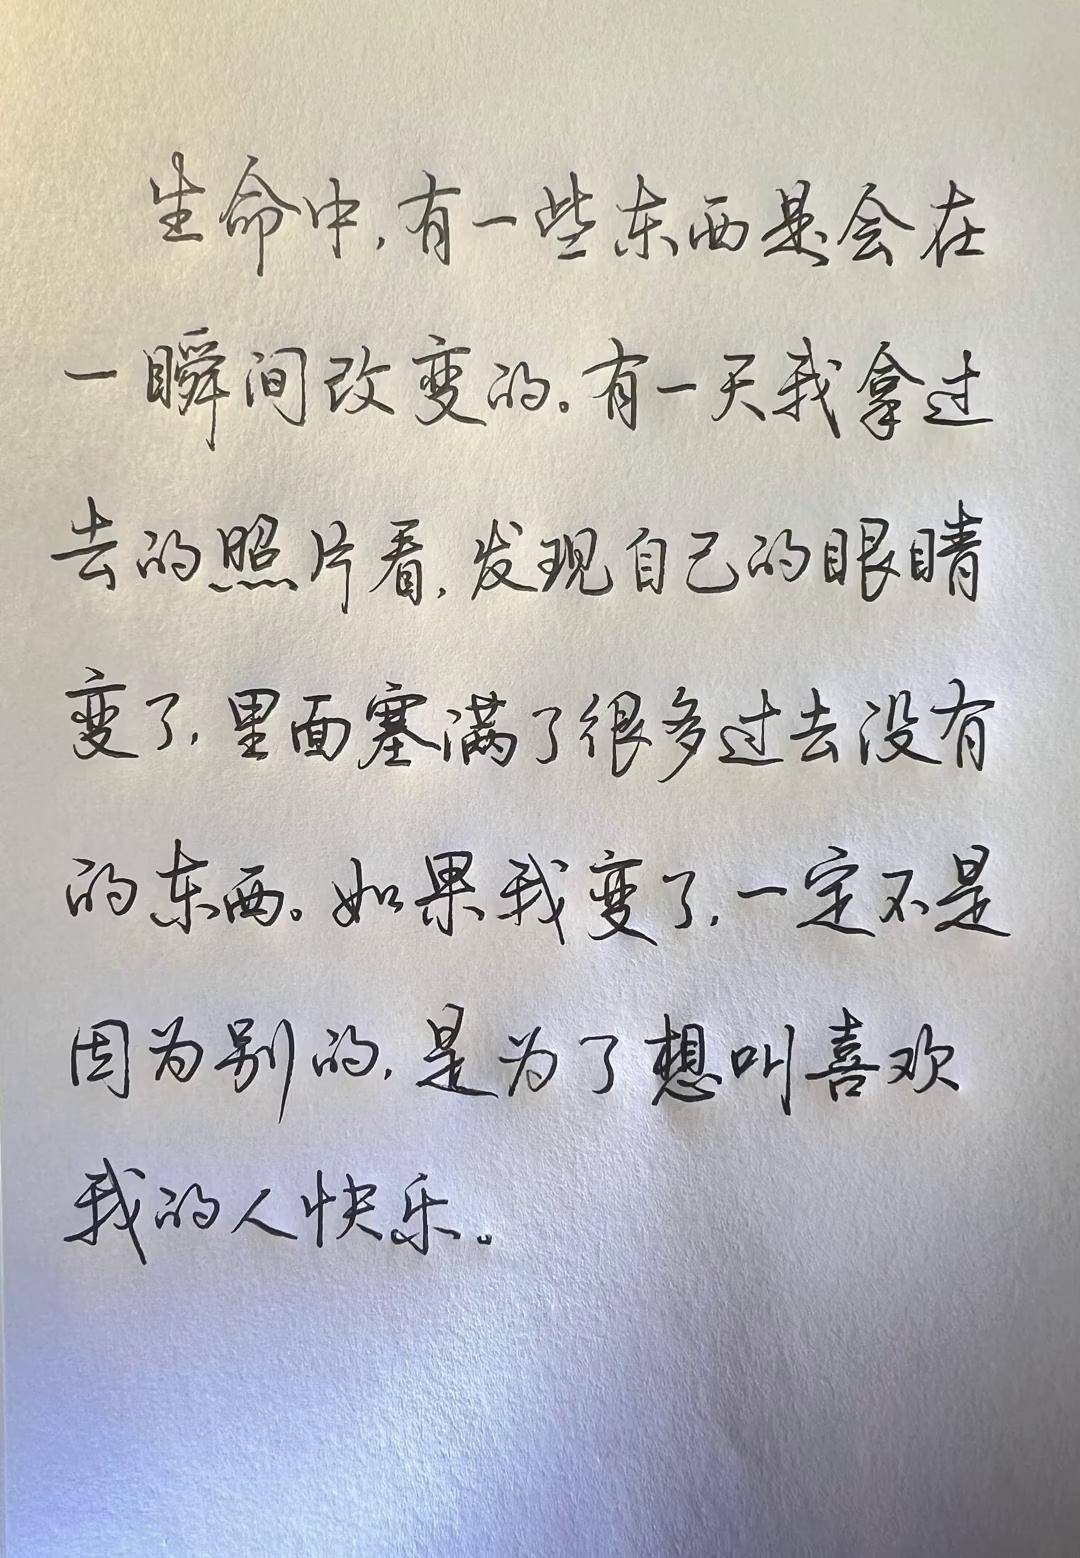 生命中,有一些东西是会在
一瞬间改变的。有一天我拿过
去的照片看,发现自己的眼睛
变了,里面塞满了很多过去没有
的东西。如果我变了,一定不是
因为别的,是为了想叫喜欢
我的人快乐。